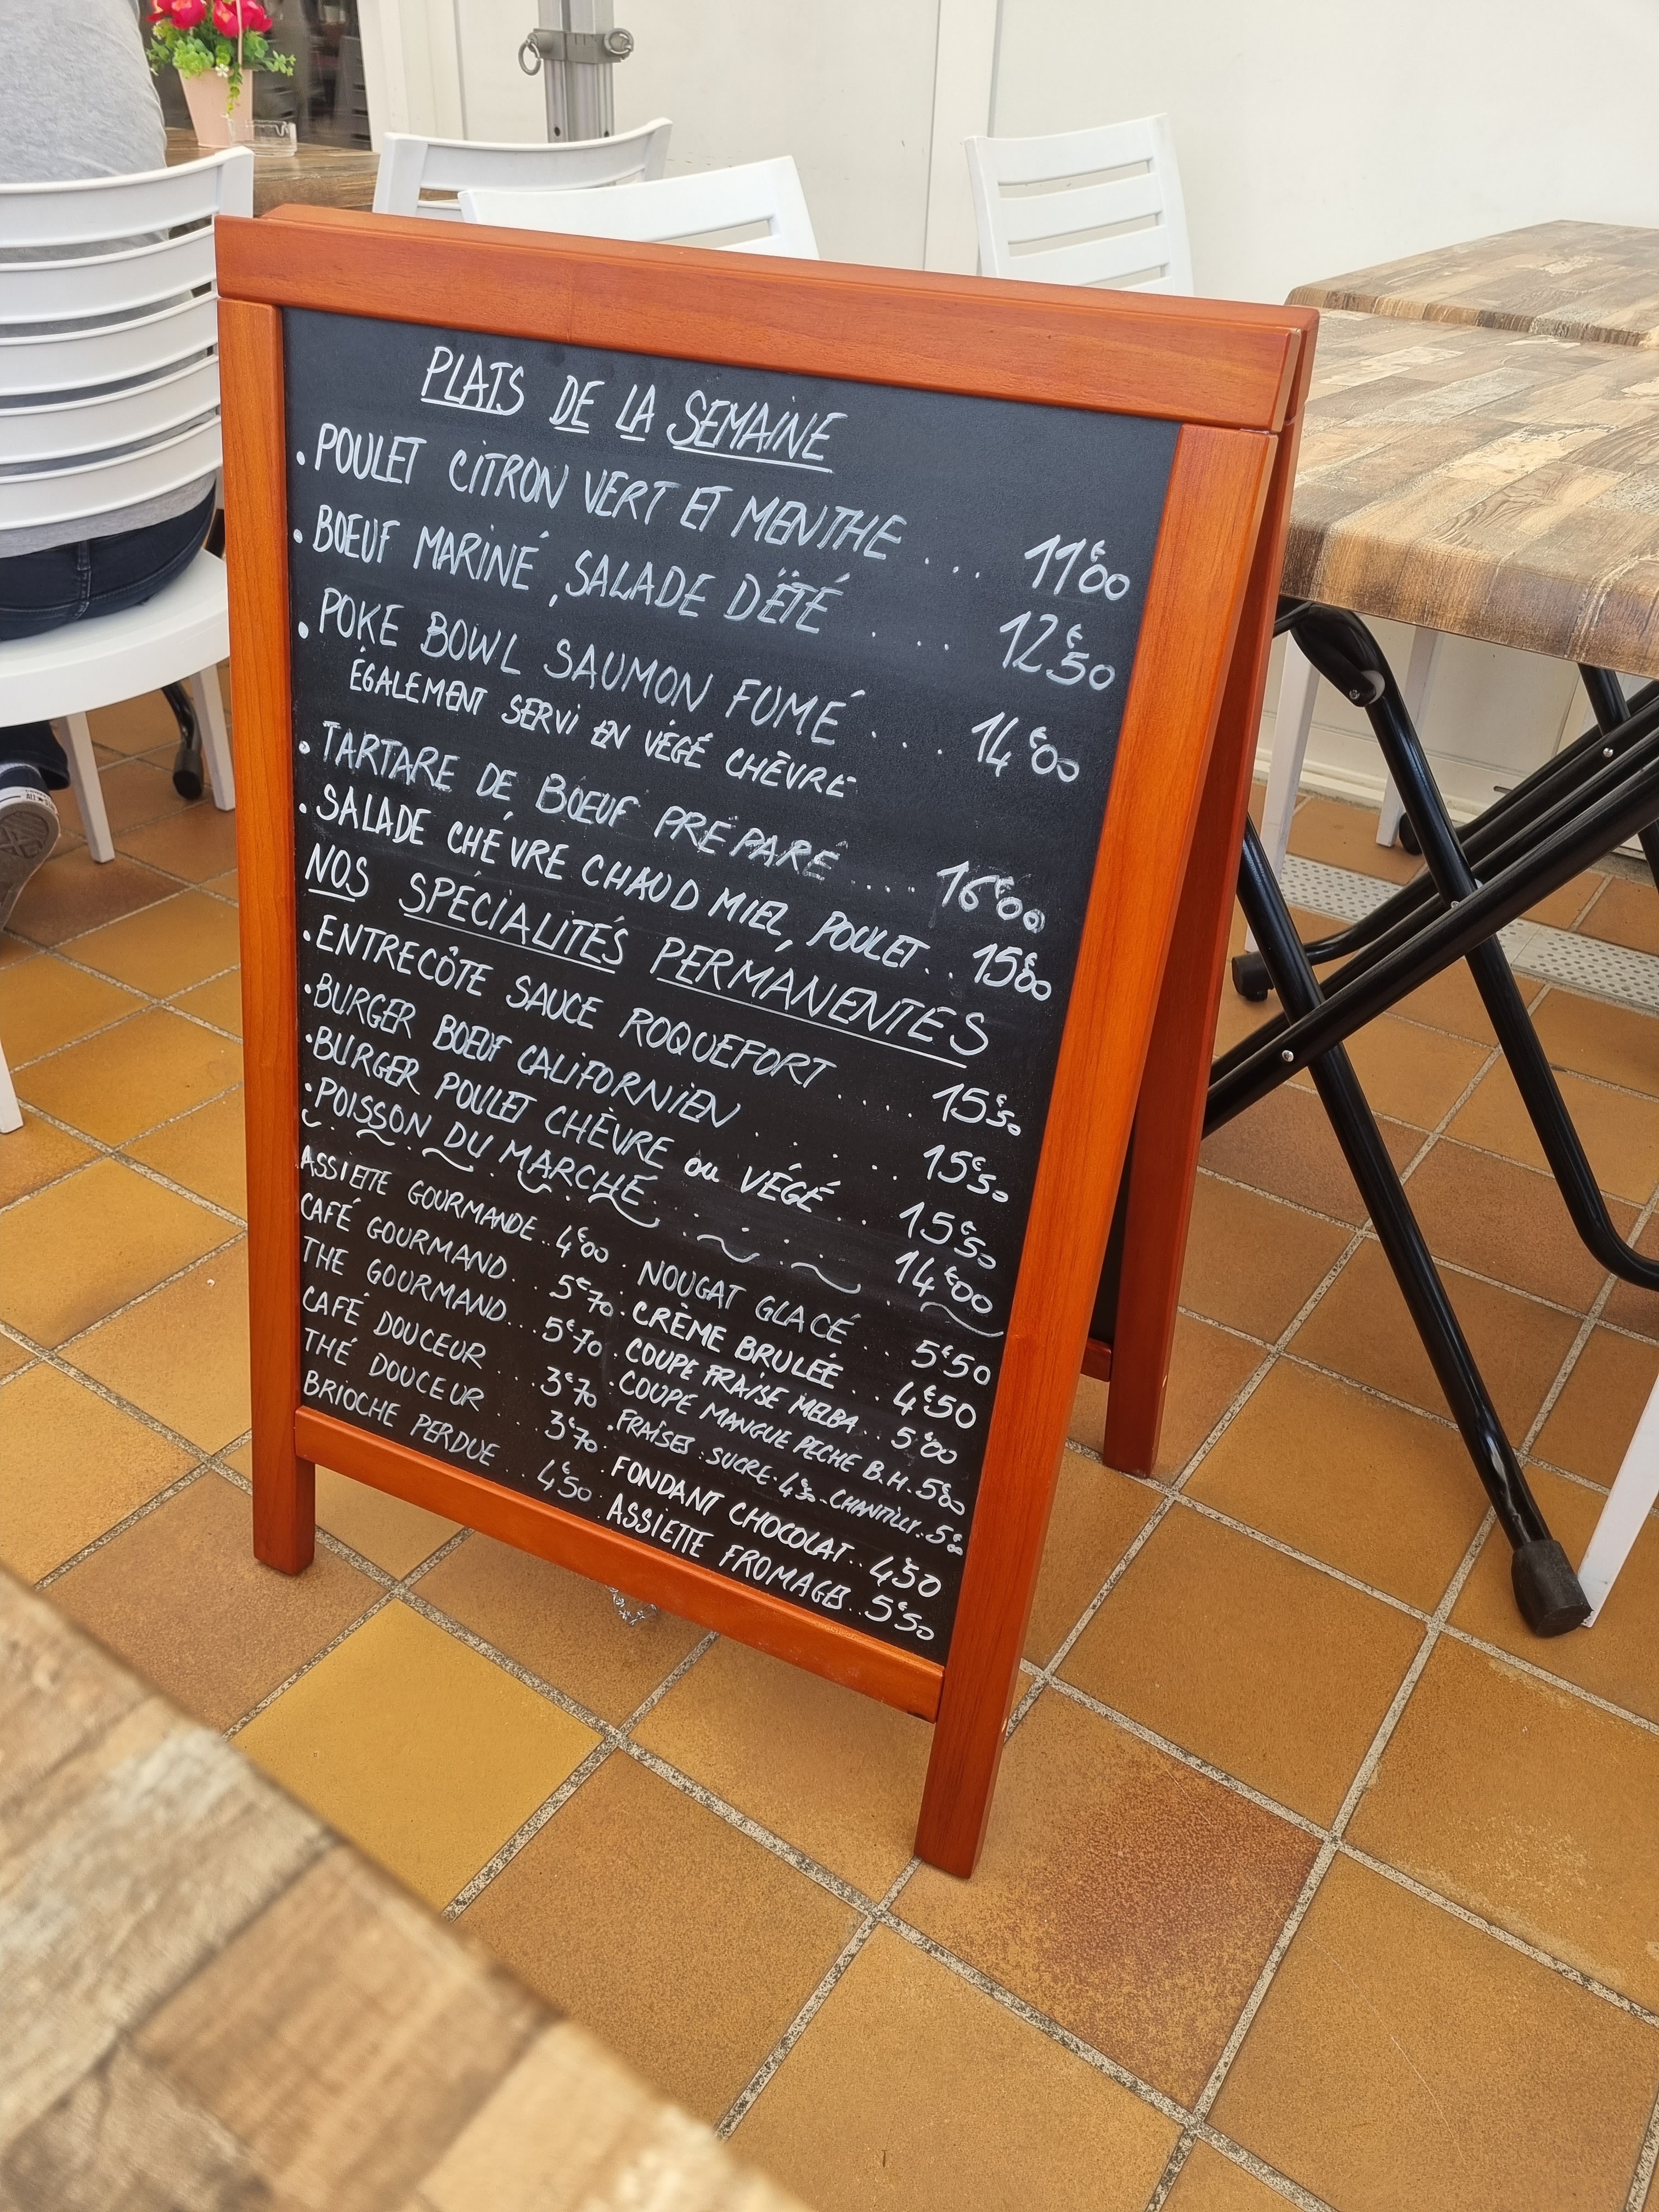 PLATS DE LA SEMAINE
. POULET CITRON VERT ET MENTHE ... 11€00
. BOEUF MARINÉ, SALADE D'ÉTÉ .... 12€50
. POKE BOWL SAUMON FUMÉ .... 14€00
ÉGALEMENT SERVI EN VÉGÉ CHÈVRE
. TARTARE DE BOEUF PRÉPARÉ .... 16€00
. SALADE CHÉVRE CHAUD MIEL, POULET .. 15€00
NOS SPÉCIALITÉS PERMANENTES
. ENTRECÔTE SAUCE ROQUEFORT .... 15€50
. BURGER BOEUF CALIFORNIEN .... 15€50
. BURGER POULET CHÈVRE ou VÉGÉ .. 15€50
. POISSON DU MARCHÉ ...... 14€00
ASSIETTE GOURMANDE .. 4€00
CAFÉ GOURMAND ... 5€70
THÉ GOURMAND ... 5€70
CAFÉ DOUCEUR ... 3€70
THÉ DOUCEUR ... 3€70
BRIOCHE PERDUE .. 4€50
. NOUGAT GLACÉ .. 5€50
. CRÈME BRULEÉ .. 4€50
. COUPE FRAISE MELBA .. 5€00
. COUPE MANGUE PECHE B.H. 5€00
. FRAISES . SUCRE . 4€50 - CHANTILLY .. 5€00
. FONDANT CHOCOLAT .. 4€50
. ASSIETTE FROMAGES .. 5€50